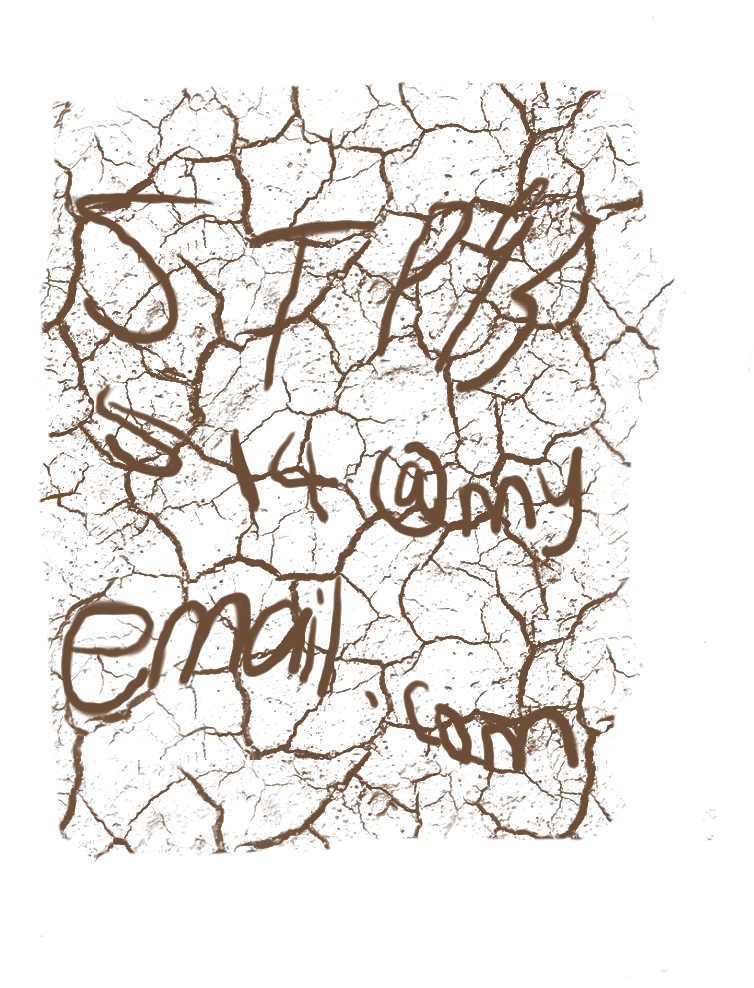 5TPy3
514@my
email
.com